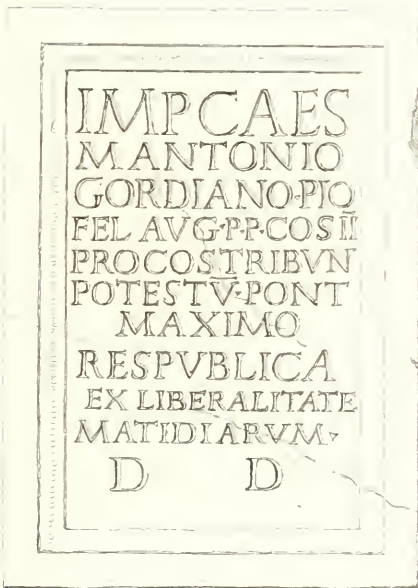 IMP CAES
M ANTONIO
GORDIANO·PIO
FEL AVG·P·P·COS II
PROCOS·TRIBVN
POTEST V·PONT
MAXIMO
RESPVBLICA
EX LIBERALITATE
MATIDIARVM
D D